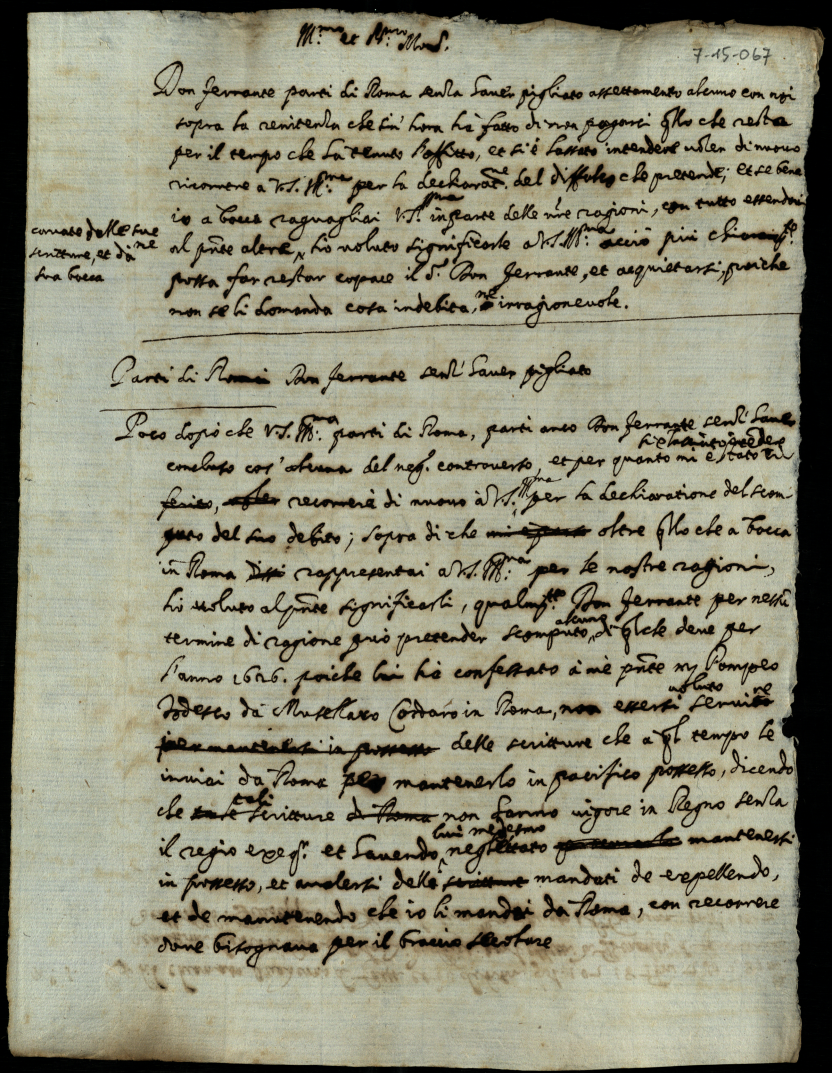 Ill.mo et R.mo Mons.
7-15-067
Don ferrante parti di Roma senza haver pigliato assettamento alcuno con noi
sopra la renitenza che sin' hora hà fatto di non pagarci q.llo che resta
per il tempo che hà tenuto l'affitto, et si è lassato intendere voler di nuovo
ricorrere a V.S. Ill.ma per la dechiarat.ne del diffalco che pretende; et se bene
io a bocca raguagliai V.S. Ill.ma in parte delle n.re ragioni, con tutto essendovi
al p.nte altre, hò voluto significarle a V.S. Ill.ma acciò più chiaram.te
cavate dalle sue
scritture, et da
sua bocca
possa far restar capace il S.r Don Ferrante, et acquietarsi, poiche
non se li domanda cosa indebita, nè irragionevole.
Parti di Roma Don ferrante senz' haver pigliato
Poco dopò che V.S. Ill.ma parti di Roma, parti anco Don ferrante senz' haver
si è lassato intendere
concluso cos' alcuna del neg.o controverso, et per quanto mi è stato ri
ferito, recorrerà di nuovo à V.S. Ill.ma per la dechiaratione del scom-
puto del suo debito; sopra di che oltre q.llo che a bocca
in Roma rappresentai a V.S. Ill.ma per le nostre ragioni,
hò voluto al p.nte significarli, qualm.te Don ferrante per nessun
termine di ragione può pretender scomputo alcuno, di q.l che deve per
l'anno 1626. poiche lui hà confessato à mè p.nte Pompeo
Todesco da Musellaro in Roma, non essersi voluto servire
per mantenersi in possesso delle scritture che a q.l tempo le
inviai da Roma per mantenerlo in pacifico possesso, dicendo
che tali scritture di Roma non hanno vigore in Regno senza
il regio exeq.r et havendo lui medesmo neglettato mantenersi
in possesso, et avalersi delle scritture mandati de expellendo,
et de manutenendo che io li mandai da Roma, con recorrere
dove bisognava per il braccio secolare